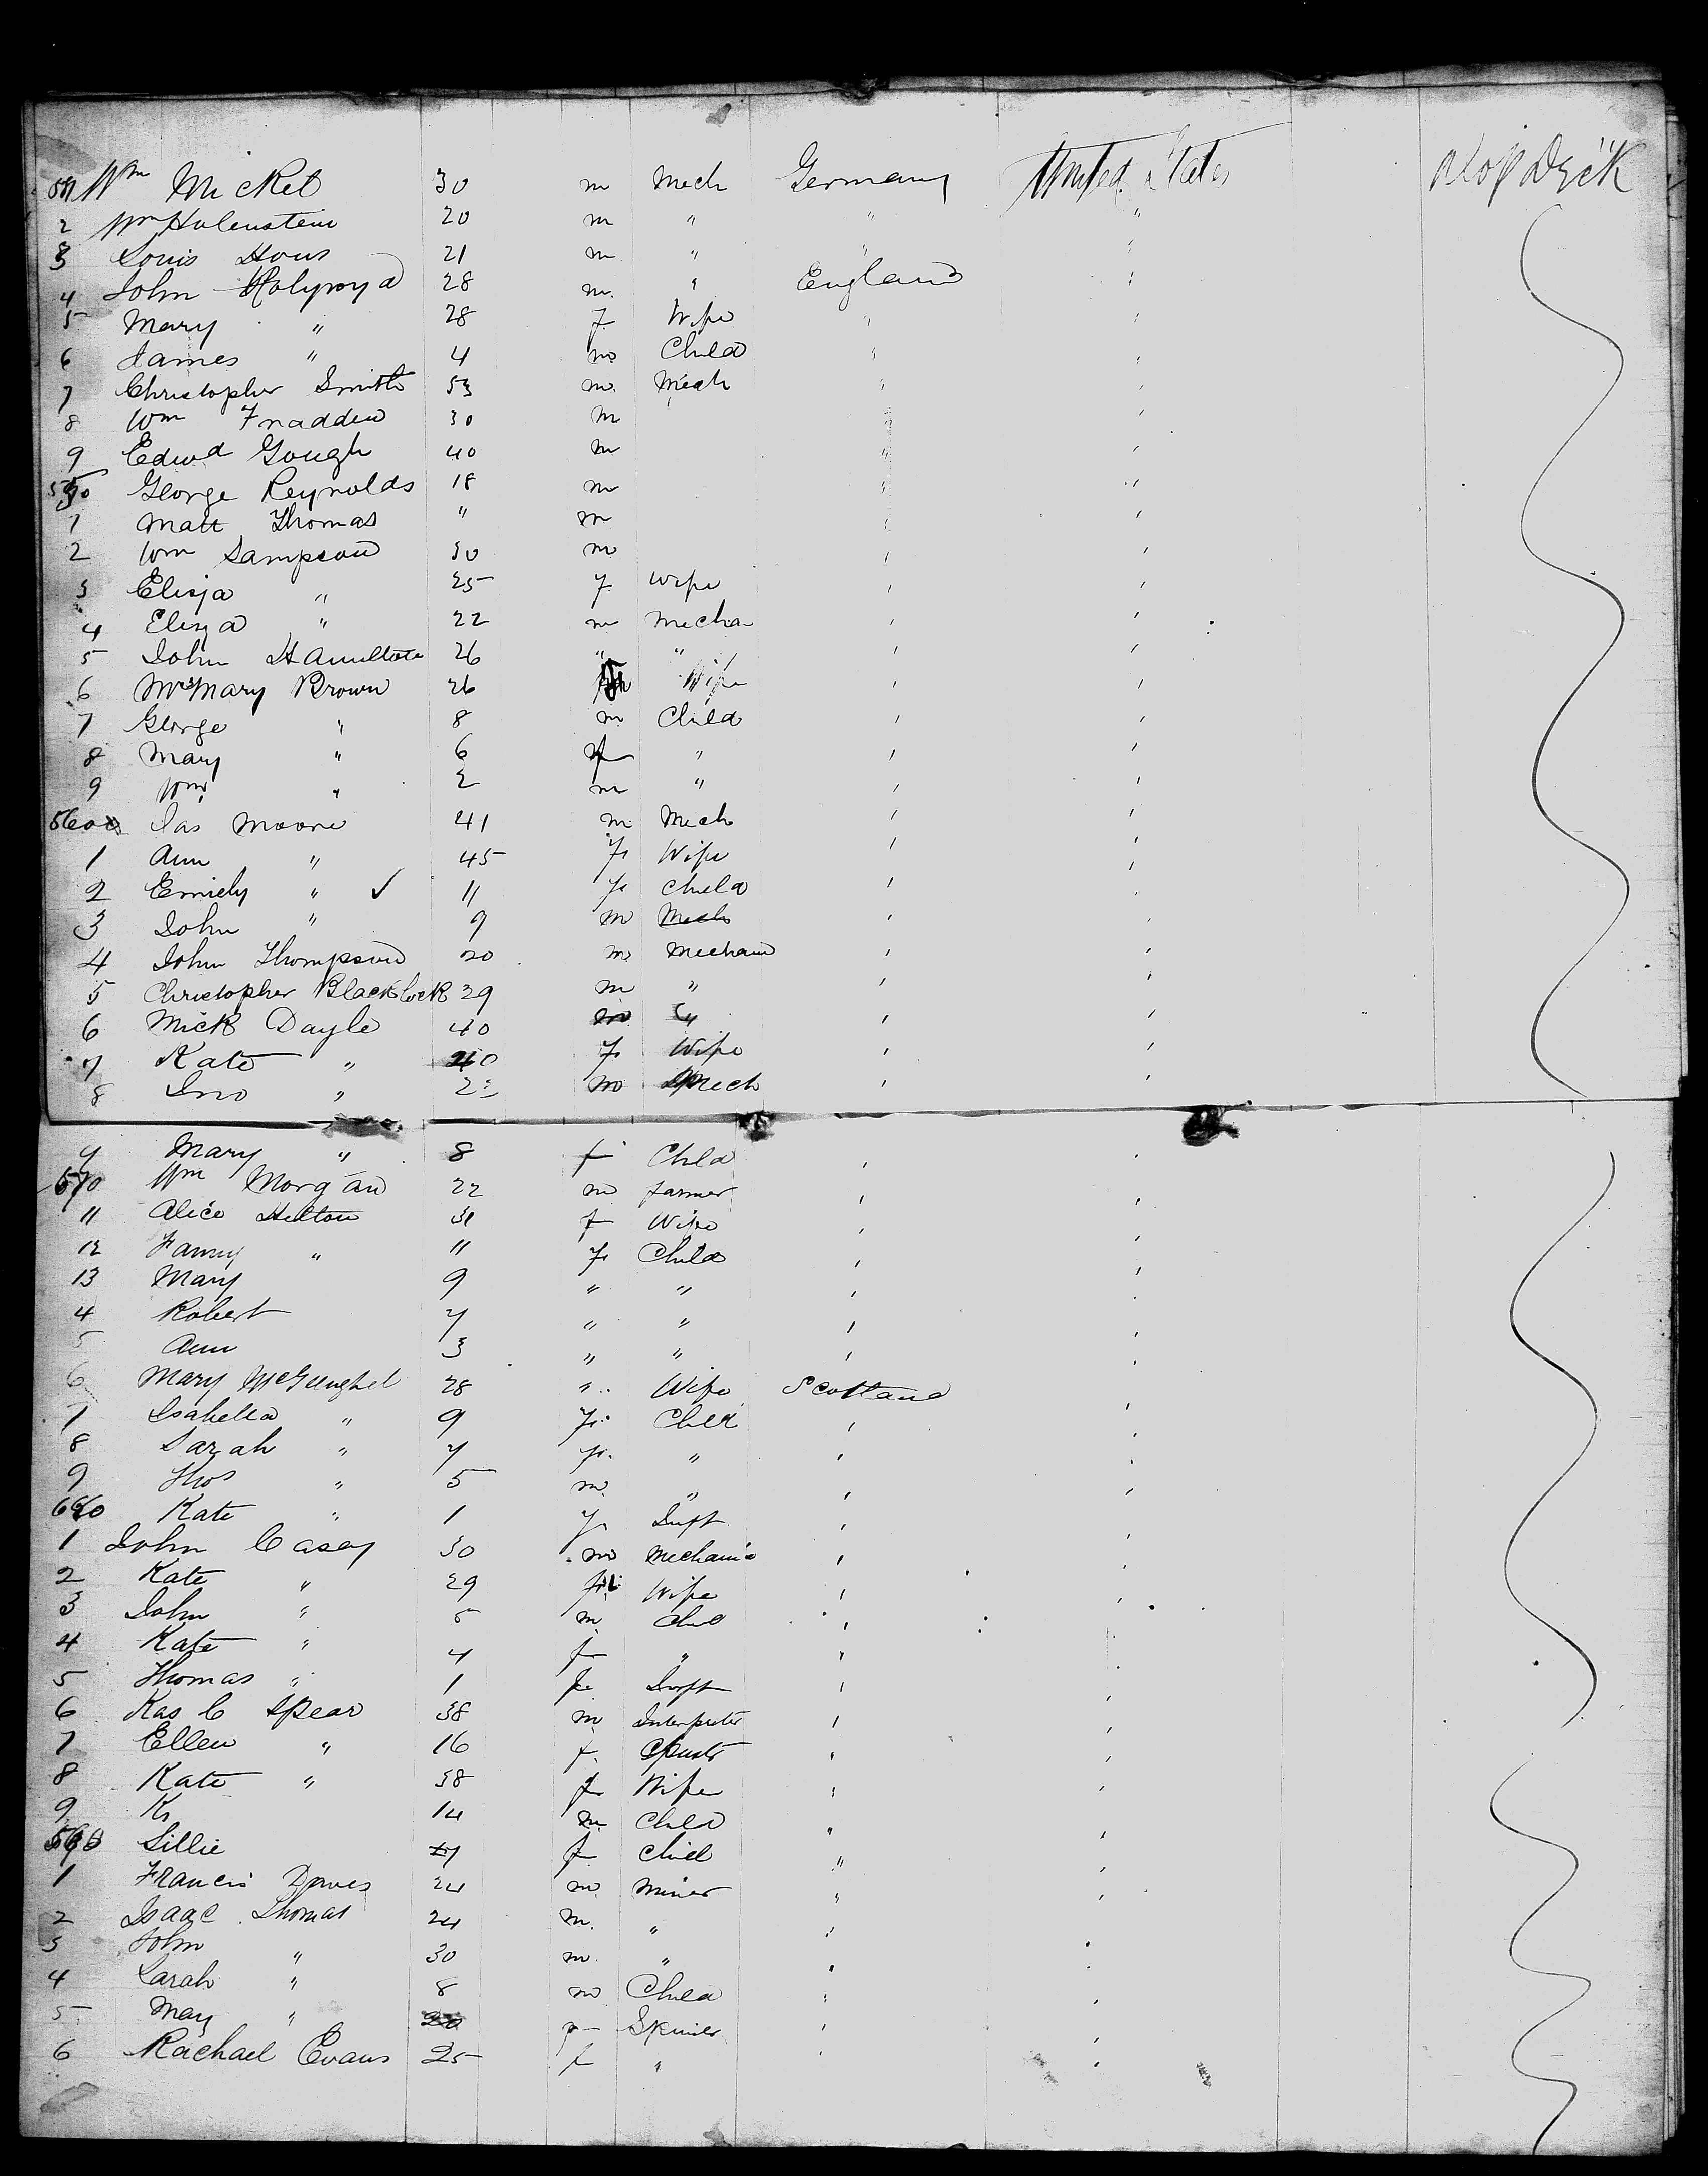 Wm Mickel 30 m Mech Germany United States
2 Wm Holenstein 20 m " " "
3 Louis Hous 21 m " " "
4 John 28 m " England "
5 Mary " 28 f Wife " "
6 James " 4 m Child " "
7 Christopher Smith 53 m Mech " "
8 Wm 30 m " "
9 Edwd Gough 40 m " "
George Reynolds 18 m " "
1 Matt Thomas " m " "
2 Wm Sampson 30 m " "
3 " 25 f Wife " "
4 Eliza " 22 m Mecha " "
5 John Hamilton 26 " " " "
6 Mrs Mary Brown 26 Wife " "
7 George " 8 m Child " "
8 Mary " 6 f " " "
9 Wm " 2 m " " "
Jas Moore 41 m Mech " "
1 Ann " 45 f Wife " "
2 Emiely " ✓ 11 f Child " "
3 John " 9 m Mech " "
4 John Thompson 20 m Mechan " "
5 Christopher Blacklock 29 m " " "
6 Mick Dayle 40 m " " "
7 Kate " 40 f Wife " "
8 Jno " m Mech " "
9 Mary " 8 f Child " "
Wm Morgan 22 m farmer " "
11 Alice Hilton 31 f Wife " "
12 Fanny " 11 f Child " "
13 Mary 9 " " " "
4 Robert 7 " " " "
5 Ann 3 " " " "
6 Mary 28 " Wife Scotland "
7 Isabella " 9 f Child " "
8 Sarah " 7 f " " "
9 Thos " 5 m " " "
Kate " 1 f Inft " "
1 John Casey 30 m Mechanic " "
2 Kate " 29 f Wife " "
3 John " 5 m Child " "
4 Kate " 4 f " " "
5 Thomas " 1 Inft " "
6 C Spear 38 m Interpreter " "
7 Ellen " 16 f Spinster " "
8 Kate " 38 f Wife " "
9 14 m Child " "
Lillie f Child " "
1 Francis Daves 24 m Miner " "
2 Isaac Thomas 24 m " " "
3 John " 30 m " " "
4 Sarah " 8 m Child " "
5 May " " "
6 Rachael Evans 25 f " " "